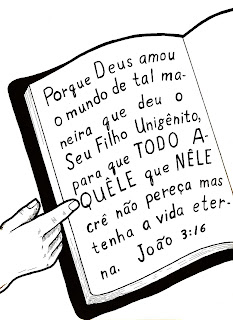 Porque Deus amou
o mundo de tal ma-
neira que deu o
Seu Filho Unigênito,
para que TODO A-
QUÊLE que NÊLE
crê não pereça mas
tenha a vida eter-
na. João 3:16